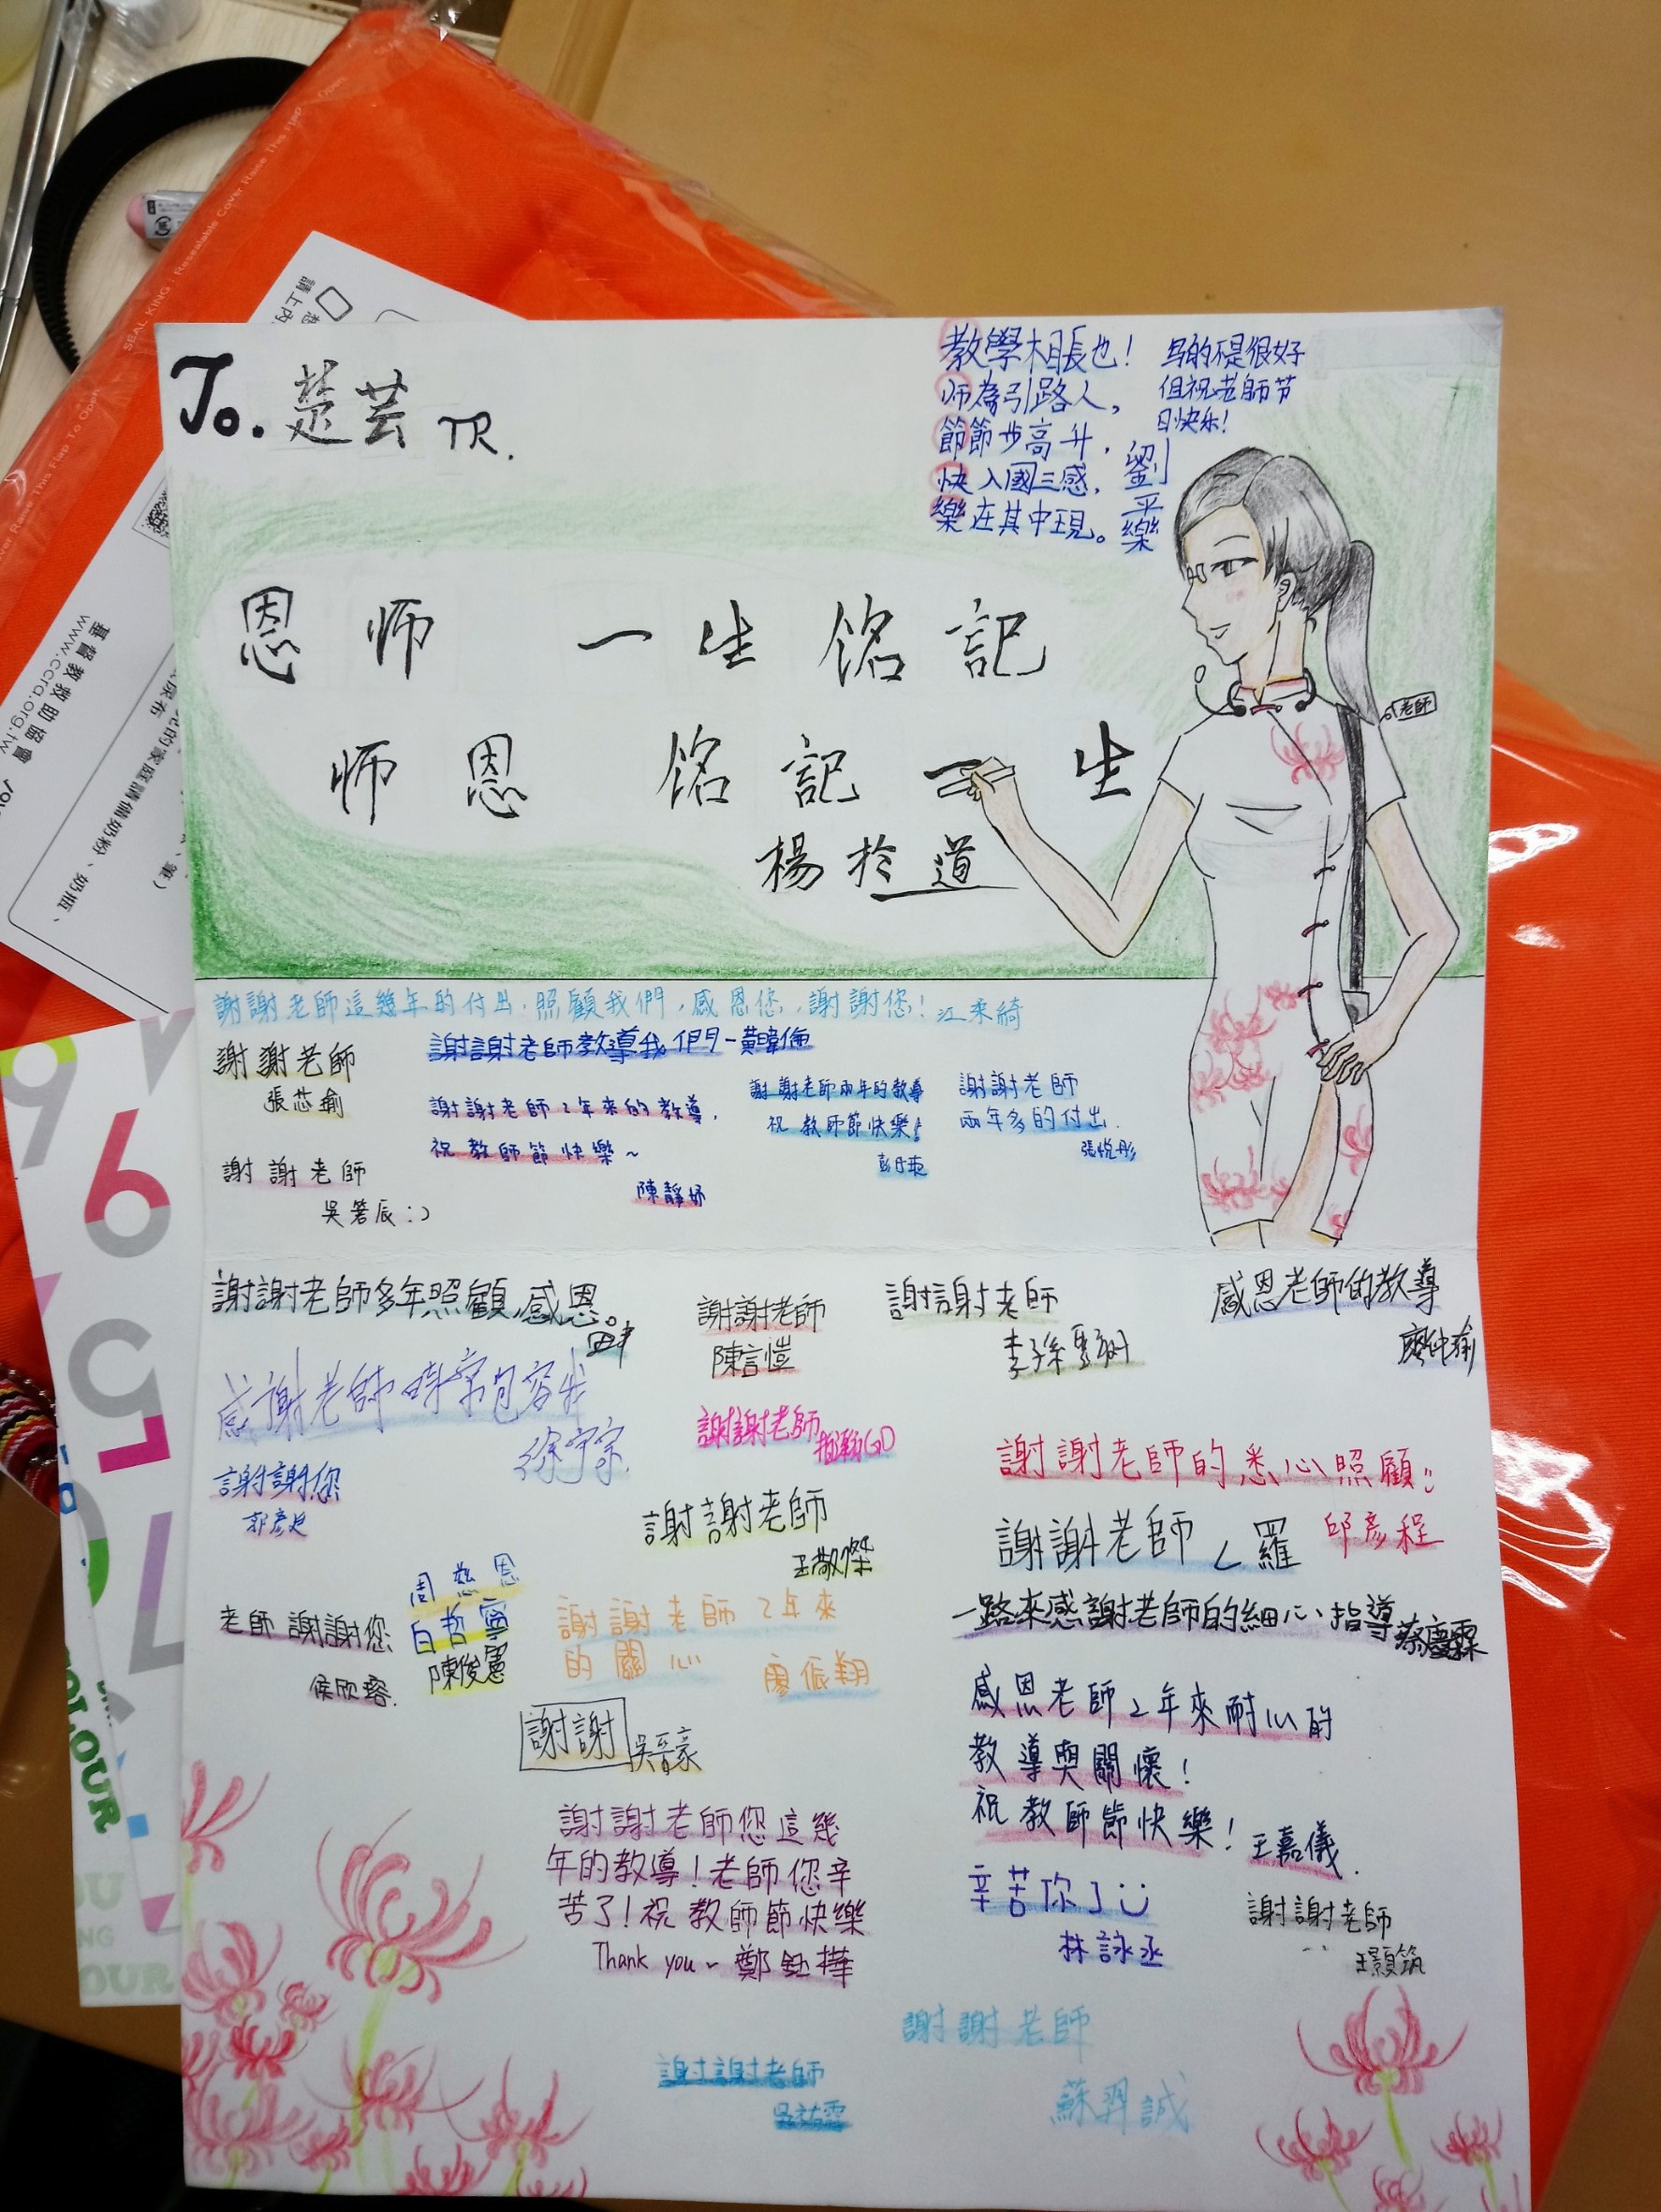 To. 楚芸 TR.
教學相長也!
师為引路人,
節節步高升,
快入國三感,
樂在其中現。
寫的不是很好
但祝老師节
日快乐!
劉平樂
恩师 一生铭記
师恩 铭記一生
楊於道
老師
謝謝老師這幾年的付出,照顧我們,感恩您,謝謝您! 江柔綺
謝謝老師
張芯瑜
謝謝老師教導我們-黃暐倫
謝謝老師2年來的教導,
祝教師節快樂~
陳靜妤
謝謝老師兩年的教導
祝教師節快樂!
謝謝老師
兩年多的付出.
張悅彤
謝謝老師
吳箬辰:)
謝謝老師多年照顧,感恩。
謝謝老師
陳言愷
謝謝老師
感恩老師的教導
廖仲瑜
感謝老師時常包容我
徐宇宗
謝謝老師
謝謝您
郭彥廷
謝謝老師
王敬傑
謝謝老師的悉心照顧!!
邱彥程
謝謝老師 ㄥ羅
周慈恩
白哲寧
陳俊憲
老師 謝謝您
侯欣瑢.
謝謝老師2年來
的關心 廖振翔
一路來感謝老師的細心指導 蔡慶霖
謝謝 吳晉豪
感恩老師2年來耐心的
教導與關懷!
祝教師節快樂! 王嘉儀.
謝謝老師您這幾
年的教導!老師您辛
苦了!祝教師節快樂
Thank you~ 鄭鈺樺
辛苦你了
林詠丞
謝謝老師
王顥筑
謝謝老師
蘇羿誠
謝謝老師
吳祐霖
SEAL KING : Resealable Cover Raise This Flap To Open
基督教救助協會
www.ccra.org.tw
COLOUR